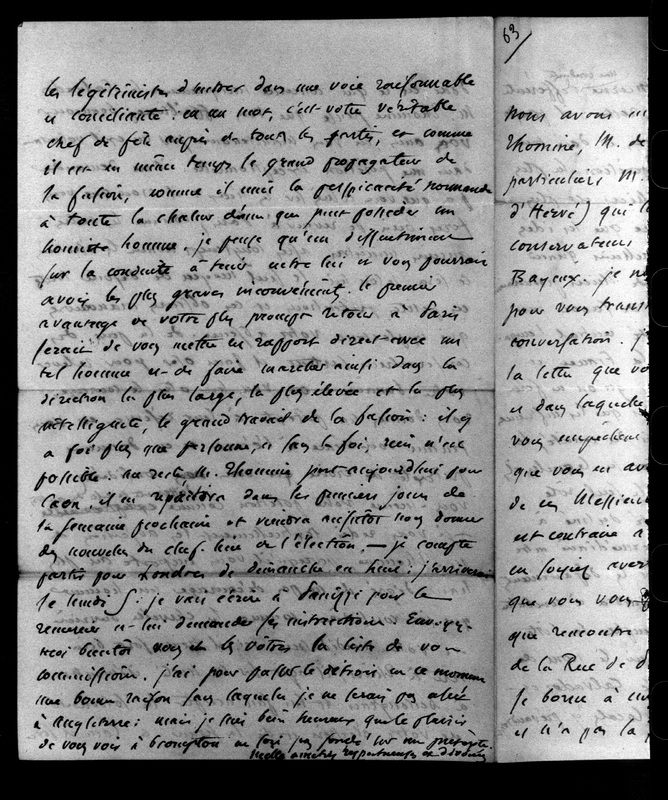 les légitimistes d'entrer dans une voie raisonnable
et conciliante : en un mot, c'est votre véritable
chef de file auprès de tous les partis, et comme
il est en même temps le grand propagateur de
la fusion, comme il unit la perspicacité normande
à toute la chaleur d'âme que peut posséder un
honnête homme, je pense qu'un dissentiment
sur la conduite à tenir entre lui et vous pourrait
avoir les plus graves inconvénients. le premier
avantage de votre plus prompt retour à Paris
serait de vous mettre en rapport direct avec un
tel homme et de faire marcher ainsi dans la
direction la plus large, la plus élevée et la plus
intelligente, le grand travail de la fusion : il y
a foi plus que personne, et sans la foi, rien n'est
possible. au reste M. Thomine part aujourd'hui pour
Caen, il en repartira dans les premiers jours de
la semaine prochaine et viendra aussitôt nous donner
des nouvelles du chef-lieu de l'élection. — je compte
partir pour Londres de dimanche en huit : j'arriverai
le lundi 5 : je vais écrire à Panizzi pour le
remercier et lui demander ses instructions. Envoyez-
moi bientôt vous et les vôtres la liste de vos
commissions. j'ai pour passer le détroit en ce moment
une bonne raison sans laquelle je ne serais pas allé
à Angleterre : mais je suis bien heureux que le plaisir
de vous voir à Brompton ne soit pas fondé sur un prétexte.
mille amitiés respectueuses et dévouées
63
nous avons
Thomine, M. de
particuliers M.
d'Hervé) qui
conservateurs
Bayeux. je
pour vous
conversation.
la lettre que
et dans laquelle
vous empêchent
que vous en
de ces Messieurs
est contraire à
en soyiez
que vous
que rencontre
de la Rue de
se borne à
et n'a pas la